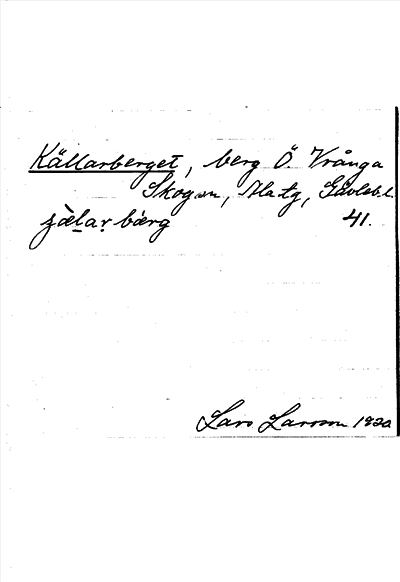 Källarberget, berg Ö. Vrånga
Skogen, Hatg, Gävleb.l.
41.
Lars Larsson 1920